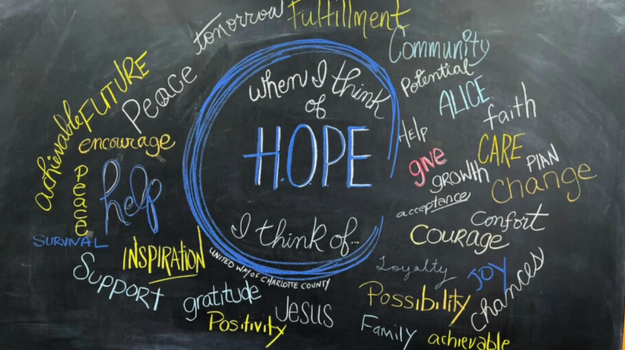 tomorrow
Fulfillment
Community
Potential
ALICE
faith
HELP
give
CARE
PLAN
GROWTH
Change
acceptance
Comfort
COURAGE
Loyalty
JOY
chances
Possibility
Family
achievable
when I think
of
H.O.P.E
I think of...
UNITED WAY OF CHARLOTTE COUNTY
FUTURE
Peace
achievable
encourage
Peace
help
SURVIVAL
INSPIRATION
Support
gratitude
Positivity
Jesus